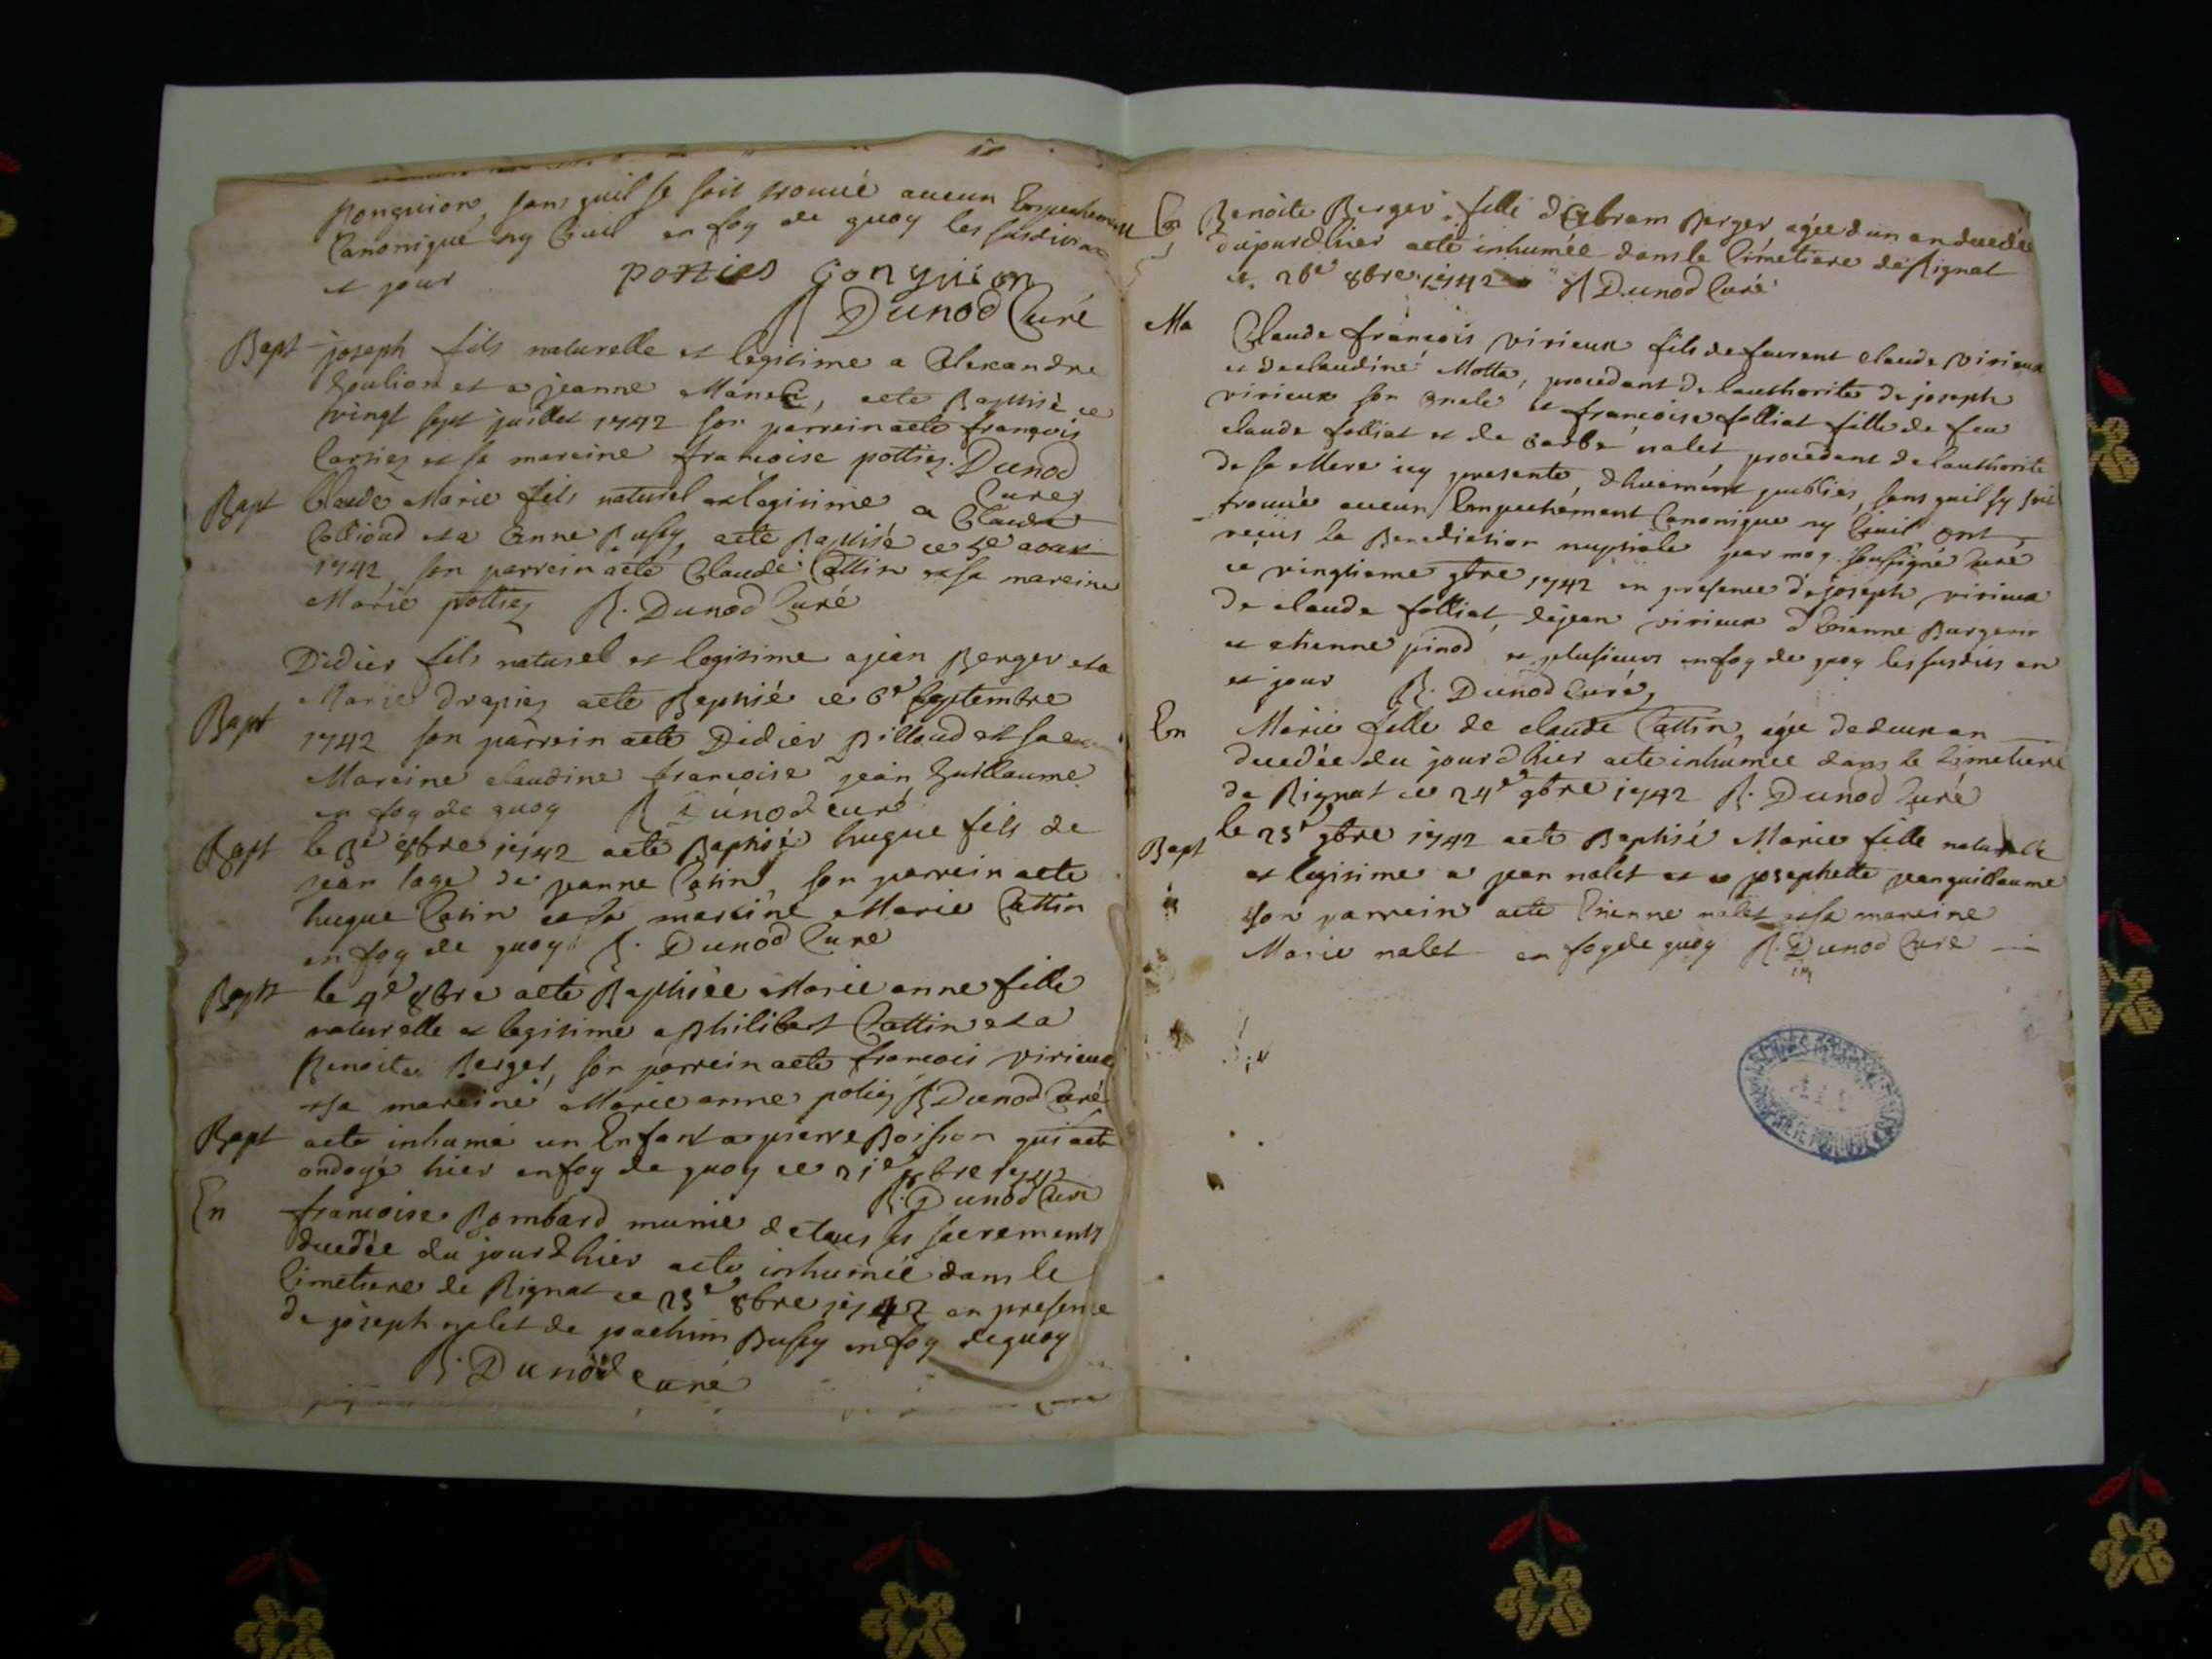 ponguion, sans quil se soit trouué aucun Empechement
Canonique ny Ciuil en foy de quoy les susdits an
et jour potties Gonguion
R Dunod Curé
Bapt joseph fils naturelle et legitime a Alexandre
Goulion et a jeanne Maneti, aeté Baptisé ce
vingt sept juillet 1742 son parrein aeté françois
et sa mareine francoise pottiez. Dunod
Curé
Bapt Claude Marie fils naturel et legitime a Claude
Collioud et a Anne Bussy, aeté Baptisé ce 5e aoust
1742, son parrein aeté Claude Cattin et sa mareine
Marie pottiez R. Dunod Curé
Didier fils naturel et legitime a jean Berger et a
Marie drapiez aeté Baptisé ce 6e Septembre
Bapt 1742 son parrein aeté Didier Billoud et sa
Mareine claudine francoise jean Guillaume
en foy de quoy R Dunod curé
Bapt le 3e 8bre 1742 aeté Baptisé hugue fils de
jean lage de jeanne Catin, son parrein aeté
hugue Catin et sa mareine Marie Cattin
en foy de quoy R. Dunod Curé
Bapt le 4e 8bre aeté Baptisée Marie anne fille
naturelle et legitime a philibert Cattin et a
Benoite Berger, son parrein aeté francois virieux
et sa mareine Marie anne potiez R Dunod Curé
Bapt aeté inhumé un Enfant a pierre Boisson qui aeté
ondoyé hier en foy de quoy ce 21e 8bre 1742
R. Dunod Curé
En francoise Bombard munie de tous ses sacrements
decedée du jourdhier aeté inhumée dans le
Cimetiere de Rignat ce 25e 8bre 1742 en presence
de joseph nalet de joachim Bussy en foy de quoy
R. Dunod curé
En Benoite Berger fille dAbram Berger agée dun an decedée
dujourdhier aeté inhumée dans le Cimetiere de Rignat
ce 26e 8bre 1742 R Dunod Curé
Ma Claude françois virieux fils de Claude virieux
et de claudine Motta, procedant de lauthorité de joseph
virieux son oncle et françoise folliat fille de feu
claude folliat et de barbe nalet procedant de lauthorité
de sa Mere icy presente, dhuement publies, sans quil sy soit
trouué aucun Empechement Canonique ny Ciuil ont
reçus la Benediction nuptiale par moy soussigné Curé
ce vingtieme 9bre 1742 en presence de joseph virieux
de claude folliat, de jean virieux dEtienne
et etienne pinod et plusieurs en foy de quoy les susdits an
et jour R. Dunod Curé
En Marie fille de claude Cattin, agée de deux an
decedée du jourdhier aeté inhumée dans le Cimetiere
de Rignat ce 24e 9bre 1742 R. Dunod Curé
Bapt le 25e 9bre 1742 aeté Baptisé Marie fille naturelle
et legitime a jean nalet et a josephette jeanguillaume
son parrein aeté Etienne nalet et sa mareine
Marie nalet en foy de quoy R. Dunod Curé